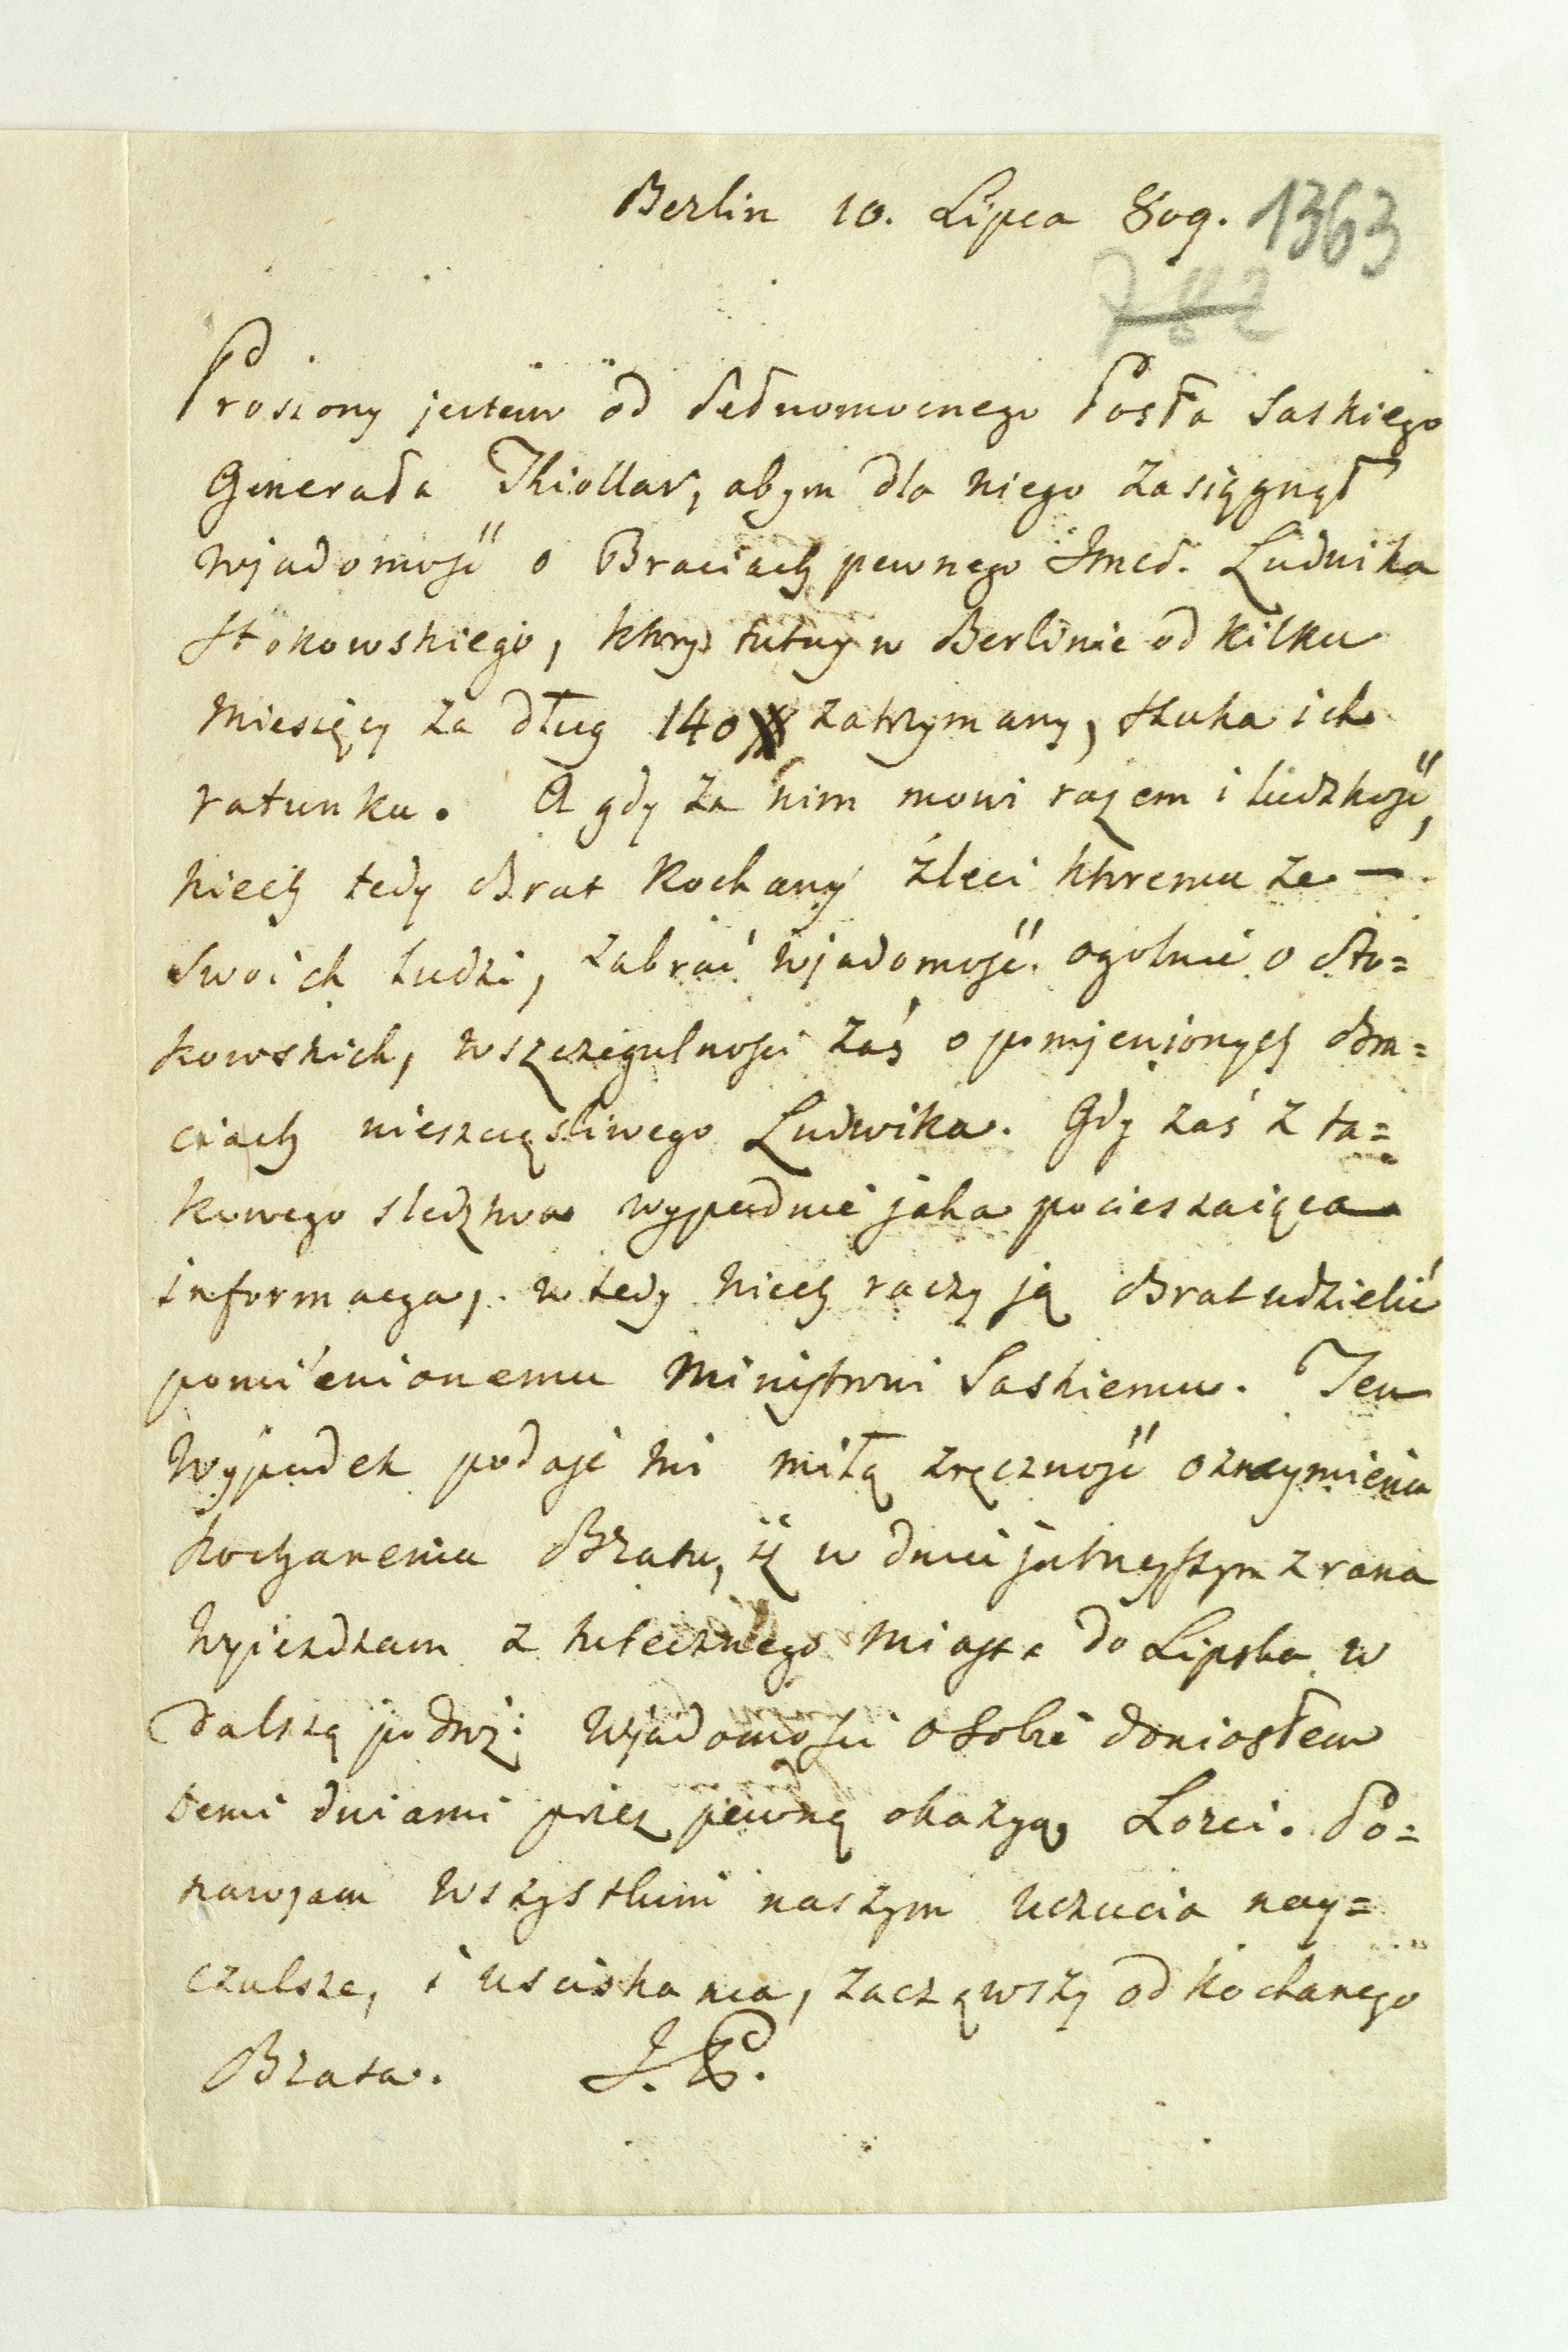 Berlin 10. Lipca 809. 1363
782
Proszony jestem od Pełnomocnego Posła Saskiego
Generała Thiollas, abym dla niego zasięgnął
wjadomość o Braciach pewnego Jmcd. Ludwika
Stokowskiego, ktory tutay w Berlinie od kilku
miesięcy za dług 140 zatrzymany, szuka ich
ratunku. A gdy za nim mowi razem i ludzkość,
niech tedy Brat Kochany źleci ktoremu ze —
Swoich Ludzi, zabrać wjadomość ogolnie o Sto=
kowskich, wszczegulnosci zaś o pomjenionych Bra=
ciach nieszczęsliwego Ludwika. Gdy zaś z ta=
kowego sledztwa wypadnie jaka pocieszaiąca
informacya, wtedy niech raczy ją Brat udzielić
pomienionemu Ministrowi Saskiemu. Ten
wypadek podaje mi miłą zręczność oznaymienia
kochanemu Bratu, iż w dniu jutrzeyszym z rana
wyieżdzam z tutecznego miasta do Lipska w
dalszą podroż; wjadomości o sobie doniosłem
temi dniami przez pewną okazyą Lorci. Po=
nawjam wszystkim naszym uczucia nay=
czulsze, i usciskania, zacząwszy od kochanego
Brata. J. P.